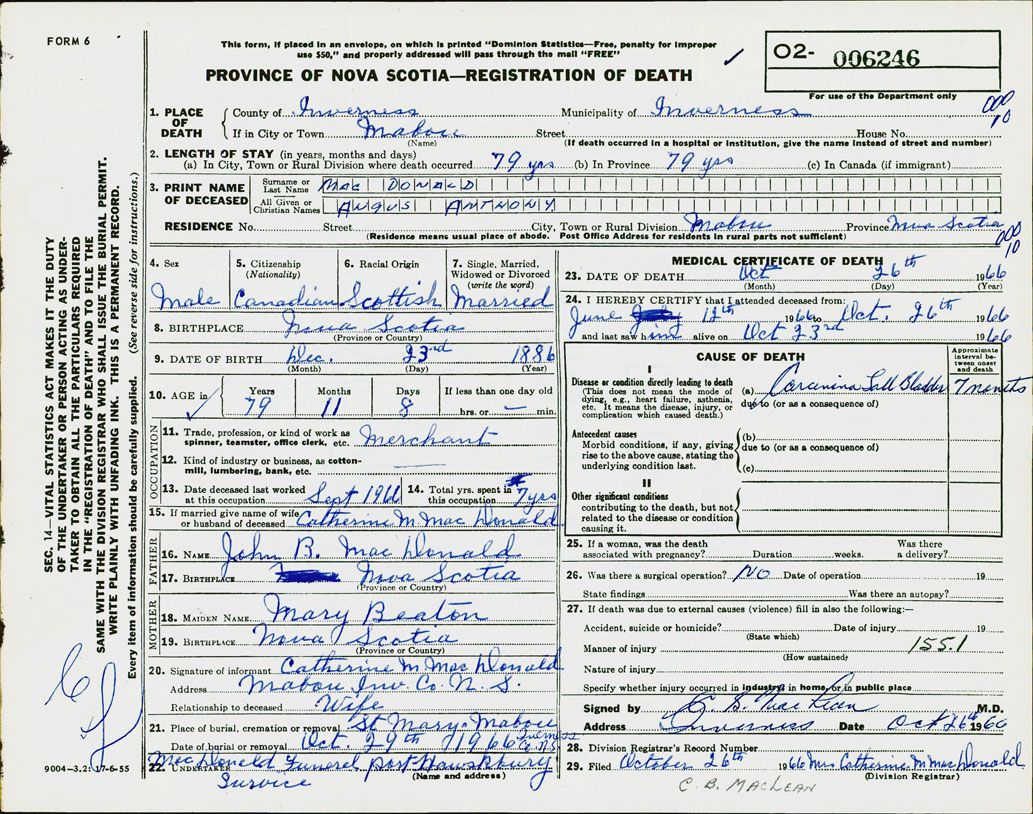 FORM 6
This form, if placed in an envelope, on which is printed "Dominion Statistics—Free, penalty for improper
use $50," and properly addressed will pass through the mail "FREE"
✓
O2- 006246
For use of the Department only
PROVINCE OF NOVA SCOTIA—REGISTRATION OF DEATH
000
10
1. PLACE OF DEATH { County of Inverness Municipality of Inverness
If in City or Town Mabou Street House No.
(Name) (If death occurred in a hospital or institution, give the name instead of street and number)
2. LENGTH OF STAY (in years, months and days)
(a) In City, Town or Rural Division where death occurred 79 yrs (b) In Province 79 yrs (c) In Canada (if immigrant)
3. PRINT NAME OF DECEASED
Surname or Last Name MAC DONALD
All Given or Christian Names ANGUS ANTHONY
RESIDENCE No. Street City, Town or Rural Division Mabou Province Nova Scotia
(Residence means usual place of abode. Post Office Address for residents in rural parts not sufficient)
000
10
4. Sex
Male
5. Citizenship
(Nationality)
Canadian
6. Racial Origin
Scottish
7. Single, Married,
Widowed or Divorced
(write the word)
Married
8. BIRTHPLACE Nova Scotia
(Province or Country)
9. DATE OF BIRTH Dec. 23rd 1886
(Month) (Day) (Year)
10. AGE in ✓
Years Months Days If less than one day old
79 11 8 hrs. or — min.
OCCUPATION
11. Trade, profession, or kind of work as
spinner, teamster, office clerk, etc. Merchant
12. Kind of industry or business, as cotton-
mill, lumbering, bank, etc. —
13. Date deceased last worked
at this occupation Sept 1966
14. Total yrs. spent in
this occupation 7 yrs
15. If married give name of wife
or husband of deceased Catherine M Mac Donald
FATHER
16. NAME John B. Mac Donald
17. BIRTHPLACE Nova Scotia
(Province or Country)
MOTHER
18. MAIDEN NAME Mary Beaton
19. BIRTHPLACE Nova Scotia
(Province or Country)
20. Signature of informant Catherine M Mac Donald
Address Mabou Inv. Co. N. S.
Relationship to deceased Wife
21. Place of burial, cremation or removal St Mary's Mabou
Inverness
Co. N.S.
Date of burial or removal Oct. 29th 1966
22. UNDERTAKER Mac Donald Funeral Port Hawksbury
(Name and address)
Survice
MEDICAL CERTIFICATE OF DEATH
23. DATE OF DEATH Oct 26th 1966
(Month) (Day) (Year)
24. I HEREBY CERTIFY that I attended deceased from:
June 12th 1966 to Oct. 26th 1966
and last saw him alive on Oct 23rd 1966
CAUSE OF DEATH
Approximate
interval be-
tween onset
and death
I
Disease or condition directly leading to death
(This does not mean the mode of
dying, e.g., heart failure, asthenia,
etc. It means the disease, injury, or
complication which caused death.)
(a) Carcinoma Gall Bladder 7 months
due to (or as a consequence of)
Antecedent causes
Morbid conditions, if any, giving
rise to the above cause, stating the
underlying condition last.
(b)
due to (or as a consequence of)
(c)
II
Other significant conditions
contributing to the death, but not
related to the disease or condition
causing it.
25. If a woman, was the death
associated with pregnancy? Duration weeks. Was there
a delivery?
26. Was there a surgical operation? NO Date of operation 19
State findings Was there an autopsy?
27. If death was due to external causes (violence) fill in also the following:—
Accident, suicide or homicide? Date of injury 19
(State which)
Manner of injury 155.1
(How sustained)
Nature of injury
Specify whether injury occurred in industry, in home, or in public place
Signed by C. B. MacLean M.D.
Address Inverness Date Oct 26th 1966
28. Division Registrar's Record Number
29. Filed October 26th 1966 Mrs Catherine M MacDonald
(Division Registrar)
C. B. MACLEAN
SEC. 14—VITAL STATISTICS ACT MAKES IT THE DUTY
OF THE UNDERTAKER OR PERSON ACTING AS UNDER-
TAKER TO OBTAIN ALL THE PARTICULARS REQUIRED
IN THE "REGISTRATION OF DEATH" AND TO FILE THE
SAME WITH THE DIVISION REGISTRAR WHO SHALL ISSUE THE BURIAL PERMIT.
WRITE PLAINLY WITH UNFADING INK. THIS IS A PERMANENT RECORD.
Every item of information should be carefully supplied. (See reverse side for instructions.)